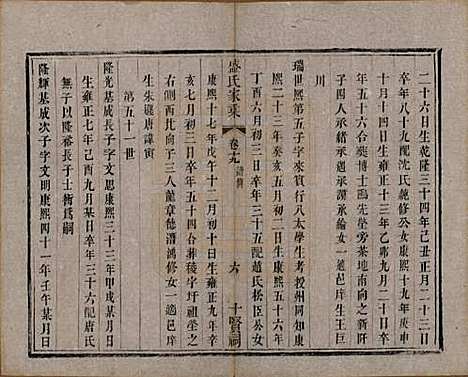 二十六日生乾隆三十四年己丑正月二十三日
卒年八十九配沈氏純修公女康熙十九年庚申
十月十四日生雍正十三年乙卯二月二十日卒
年五十六葬博士鷗先塋旁茶地南向之新阡
子四人承遇承謨承綸女一適邑庠生王巨
川
瑞世熙第五子字賓行八太學生考授州同知康
熙二十三年癸亥五月初二日生康熙五十六年
丁酉六月初三日卒年三十五配趙氏松臣公女
盛氏家乘
卷九
譜
六
十賢祠
康熙十七年戊午十二月初十日生雍正九年辛
亥七月初三日卒年五十四合葬稜字圩祖塋之
右側西穴子三人龍章德潛鴻修女一適邑庠
生朱巖唐諱寅
第五十一世
隆光基成長子字文思康熙三十三年甲戌某月日
生雍正七年己酉九月某日卒年三十六配唐氏
無子以隆裕長子士術爲嗣
隆輝基成次子字文明康熙四十一年壬午某月日